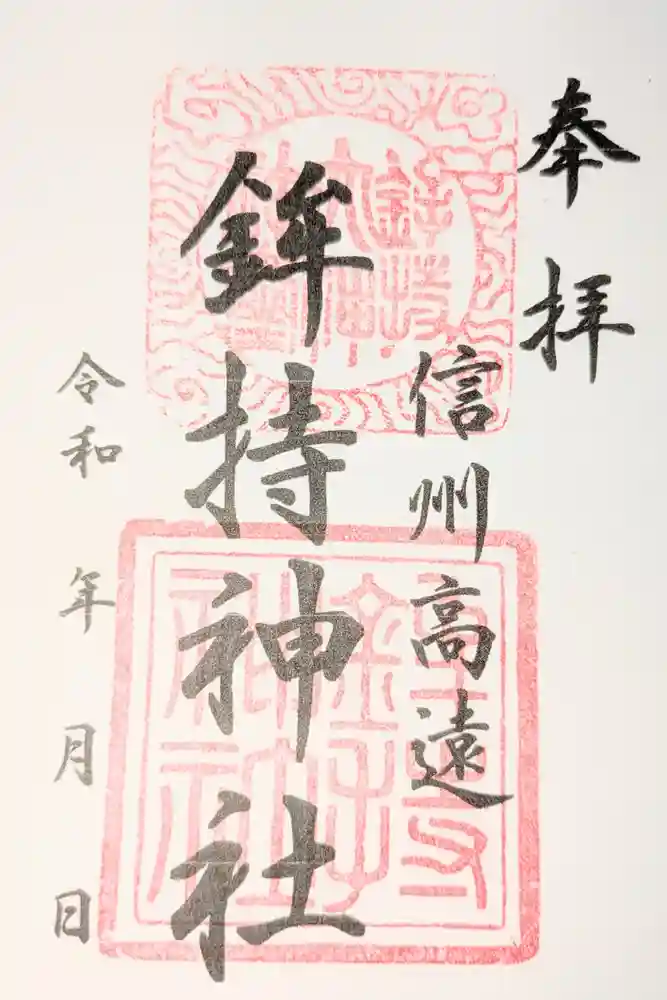 奉拝
信州高遠
鉾持神社
令和 年 月 日
鉾持
神社